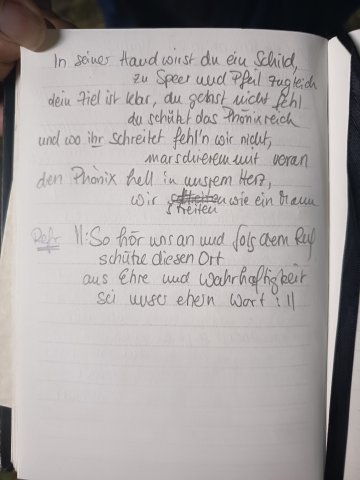 In seiner Hand wirst du ein Schild,
zu Speer und Pfeil zugleich
dein Ziel ist klar, du gehst nicht fehl
du schützt das Phönixreich
und wo ihr schreitet fehl'n wir nicht,
marschieren mit voran
den Phönix hell in unsrem Herz,
wir streiten wie ein Mann
Refr. ||: So hör uns an und folg dem Ruf
schütze diesen Ort
aus Ehre und Wahrhaftigkeit
sei unser ehern Wort :||